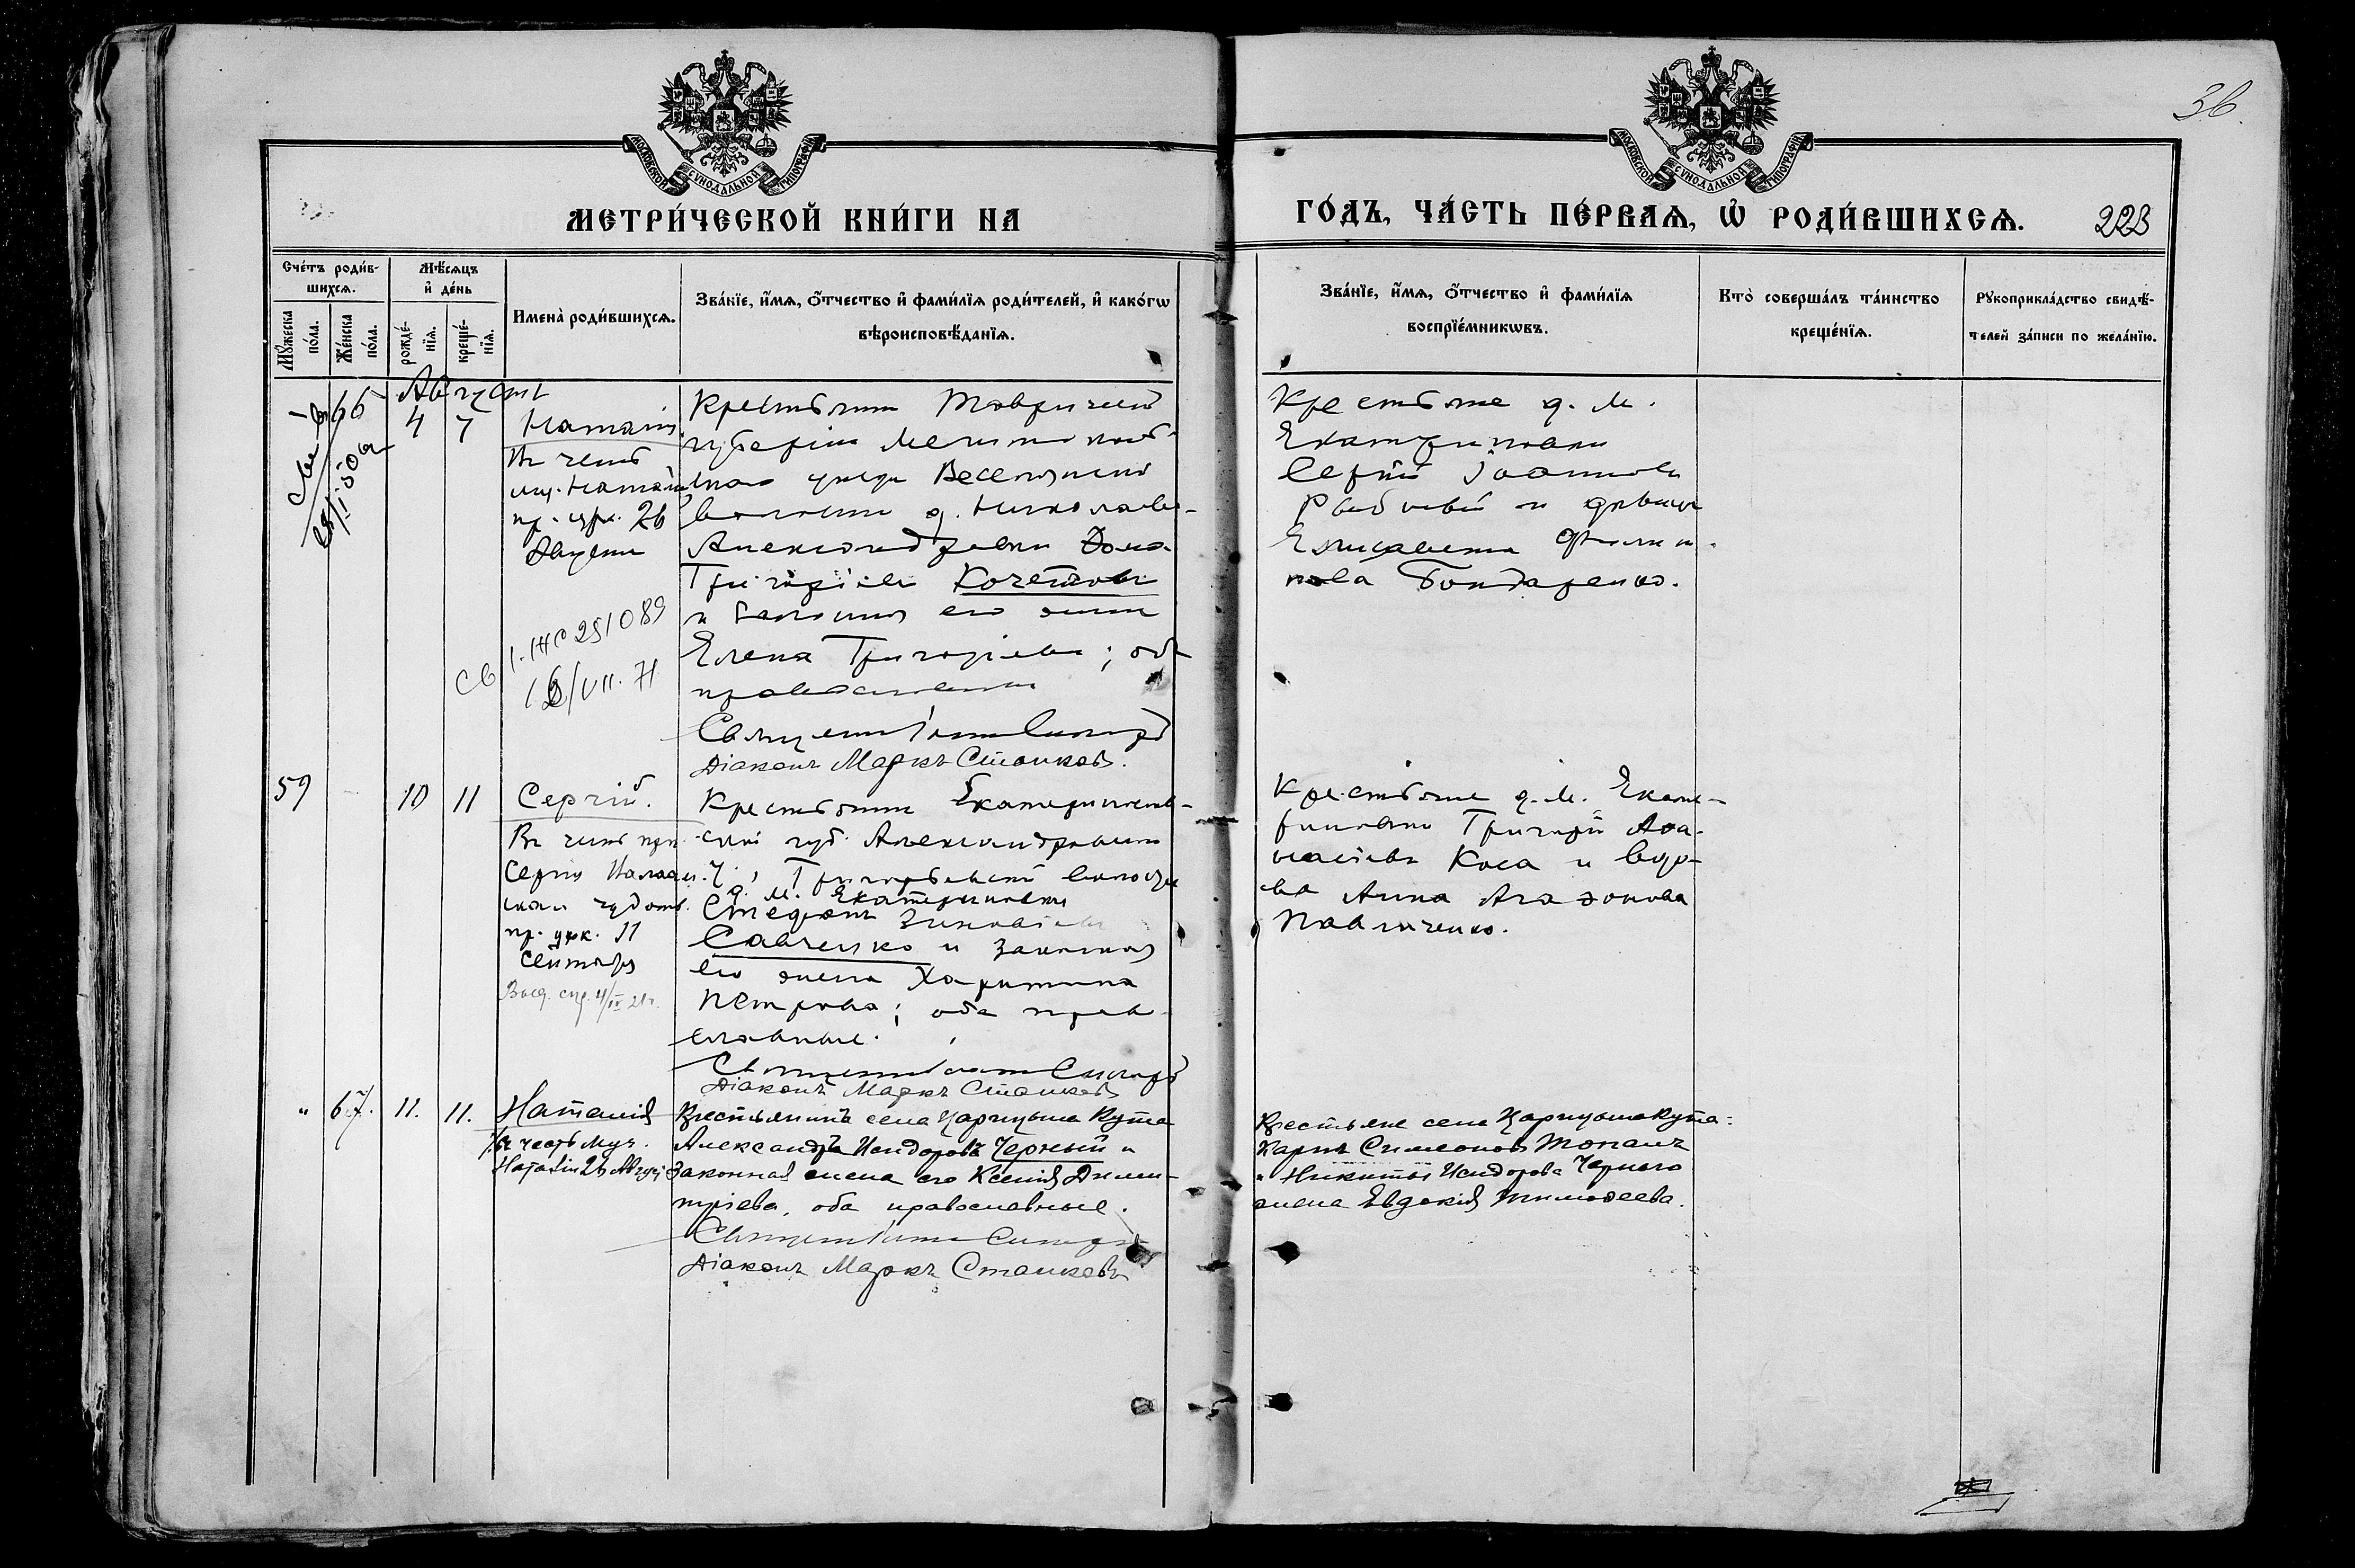 36.
МОСКОВСКОЙ СУНОДАЛЬНОЙ ТИПОГРАФІИ
МОСКОВСКОЙ СУНОДАЛЬНОЙ ТИПОГРАФІИ
МЕТРИ́ЧЕСКОЙ КНИ́ГИ НА
ГО́ДЪ, ЧА́СТЬ ПЕ́РВАѦ, Ѡ҆ РОДИ́ВШИХСѦ.
223
Сче́тъ роди́в-
шихсѧ.
Мꙋ́жеска
по́ла.
Же́нска
по́ла.
Мѣ́сѧцъ
и҆ де́нь
рожде́-
нїѧ.
креще́-
нїѧ.
И҆мена̀ роди́вшихсѧ.
Зва́нїе, и҆́мѧ, ѻ҆́тчество и҆ фами́лїѧ роди́телей, и҆ како́гѡ
вѣроисповѣ́данїѧ.
Зва́нїе, и҆́мѧ, ѻ҆́тчество и҆ фами́лїѧ
воспрїе́мникѡвъ.
Кто̀ соверша́лъ та́инство
креще́нїѧ.
Рꙋкоприкла́дство свидѣ́-
телей за́писи по жела́нїю.
Августъ
66
4
7
Наталія
Въ честь
муч. Наталіи
пр. црк. 26
Августа
Св
I-ЖС 251089
/VII. 71
Крестьянинъ Таврической
губерніи Мелитополь-
скаго уѣзда Веселовской
волости д. Николаев-
Александровки
Григоріевъ Кочетковъ
и законная его жена
Елена Григоріева; оба
православные
Священникъ
Діаконъ Маркъ Станковъ.
Крестьяне д. М.
Екатериновки
Сергій Іоанновъ
и дѣвица
Елисавета Филип-
пова Бондаренко.
59
10
11
Сергій.
Въ честь прп.
Сергія Валаам-
скаго чудотв.
пр. црк. 11
Сентября
Выд. спр. 4/IV 21 г.
Крестьянинъ Екатеринослав-
ской губ. Александровскаго
у., Григорьевской волости
д. М. Екатериновки
Стефанъ Зиновіевъ
Савченко и законная
его жена Харитина
Петрова; оба право-
славные.
Священникъ
Діаконъ Маркъ Станковъ
Крестьяне д. М. Екате-
риновки Григорій Аѳа-
насіевъ Коса и вдо-
ва Анна Агаѳонова
Павличенко.
"
67.
11.
11.
Наталія
Въ честь муч.
Наталіи 26 Авгус.
Крестьянинъ села Царицына Кута
Александръ Исидоровъ Черный и
законная жена его Ксенія Дими-
тріева, оба православные.
Священникъ
Діаконъ Маркъ Станковъ
Крестьяне села Царицына Кута:
Карпъ Симеоновъ
и Никиты Исидорова Чернаго
жена Евдокія Тимоѳеева.